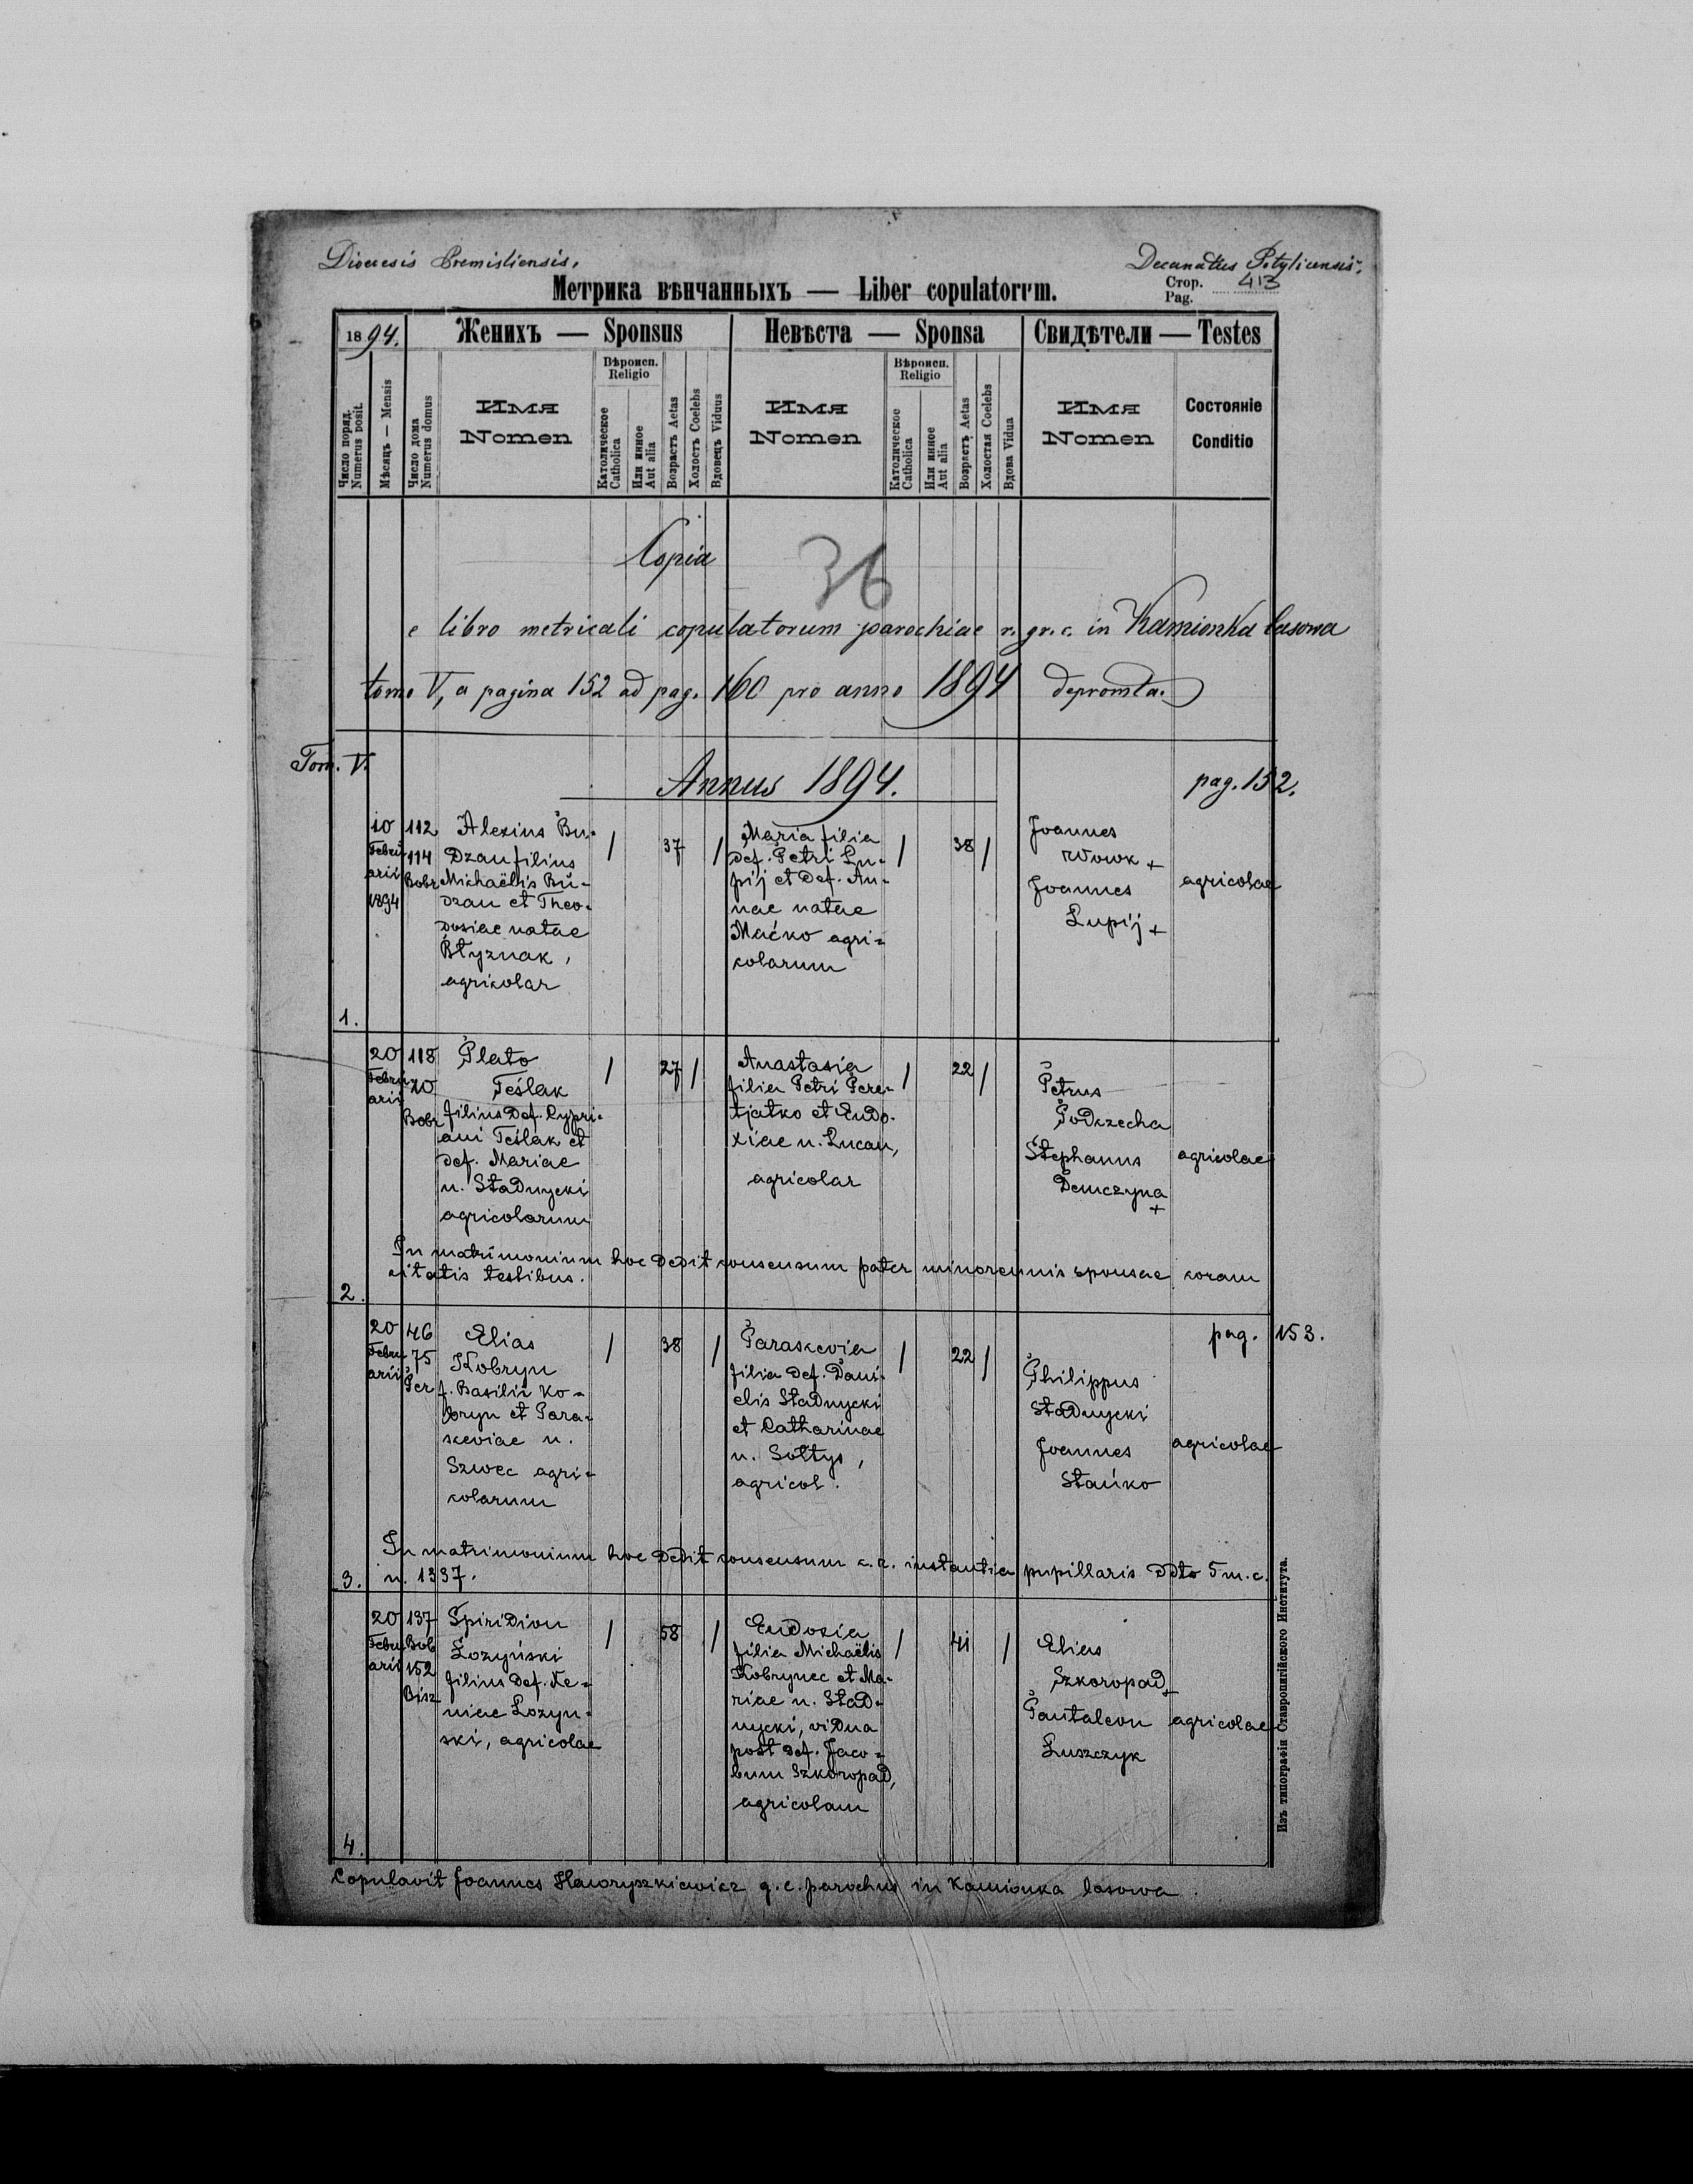 Dioecesis Premisliensis,
Decanatus Potylicensis.
Метрика вѣнчанныхъ — Liber copulatorum.
Стор. Pag. 413
1894.
Женихъ — Sponsus
Невѣста — Sponsa
Свидѣтели — Testes
Число поряд. Numerus posit.
Мѣсяцъ — Mensis
Число дома Numerus domus
Имя Nomen
Вѣроисп. Religio
Католическое Catholica
Или инное Aut alia
Возрастъ Aetas
Холостъ Coelebs
Вдовецъ Viduus
Имя Nomen
Вѣроисп. Religio
Католическое Catholica
Или инное Aut alia
Возрастъ Aetas
Холостая Coelebs
Вдова Vidua
Имя Nomen
Состояніе Conditio
Copia
36
e libro metricali copulatorum parochiae r. gr. c. in Kamionka lasowa
tomo V, a pagina 152 ad pag. 160 pro anno 1894 depromta.
Tom. V.
Annus 1894.
pag. 152.
1.
10
Febru
arii
1894
112
114
Bobr
Alexius Bu-
dzan filius
Michaëlis Bu-
dzan et Theo-
dosiae natae
Błyznak,
agricolar
/ 37 /
Maria filia
def. Petri Lu-
pij et def. An-
nae natae
Maćko agri-
colarum
/ 38 /
Joannes
Wowk +
Joannes
Lupij +
agricolae
2.
20
Febru
arii
118
20
Bobr
Plato
Teślak
filius def. Cypri-
ani Teślak et
def. Mariae
n. Stadnycki
agricolarum
/ 27 /
Anastasia
filia Petri Pere-
tjatko et Eudo-
xiae n. Lucan,
agricolar
/ 22 /
Petrus
Podrzecha
Stephanus
Demczyna
+
agricolae
In matrimonium hoc dedit consensum pater minorennis sponsae coram
citatis testibus.
3.
20
Febru
arii
46
75
Per
Elias
Kobryn
f. Basilii Ko-
bryn et Para-
skeviae n.
Szwec agri-
colarum
/ 38 /
Paraskevia
filia def. Dani-
elis Stadnycki
et Catharinae
n. Sołtys,
agricol.
/ 22 /
pag. 153.
Philippus
Stadnycki
Joannes
Stańko
agricolae
In matrimonium hoc dedit consensum c. r. instantia pupillaris ddto 5 m. c.
n. 1337.
4.
20
Febru
arii
137
Bob
152
Bisz
Spiridion
Łozyński
filius def. Xe-
niae Lozyn-
ski, agricolae
/ 58 /
Eudoxia
filia Michaëlis
Kobrynec et Ma-
riae n. Stad-
nycki, vidua
post def. Jaco-
bum Szkoropad,
agricolam
/ 41 /
Elias
Szkoropad +
Pantaleon
Luszczyk
agricolae
Copulavit Joannes Hawryszkiewicz g. c. parochus in Kamionka lasowa.
Изъ типографіи Ставропигійского Института.